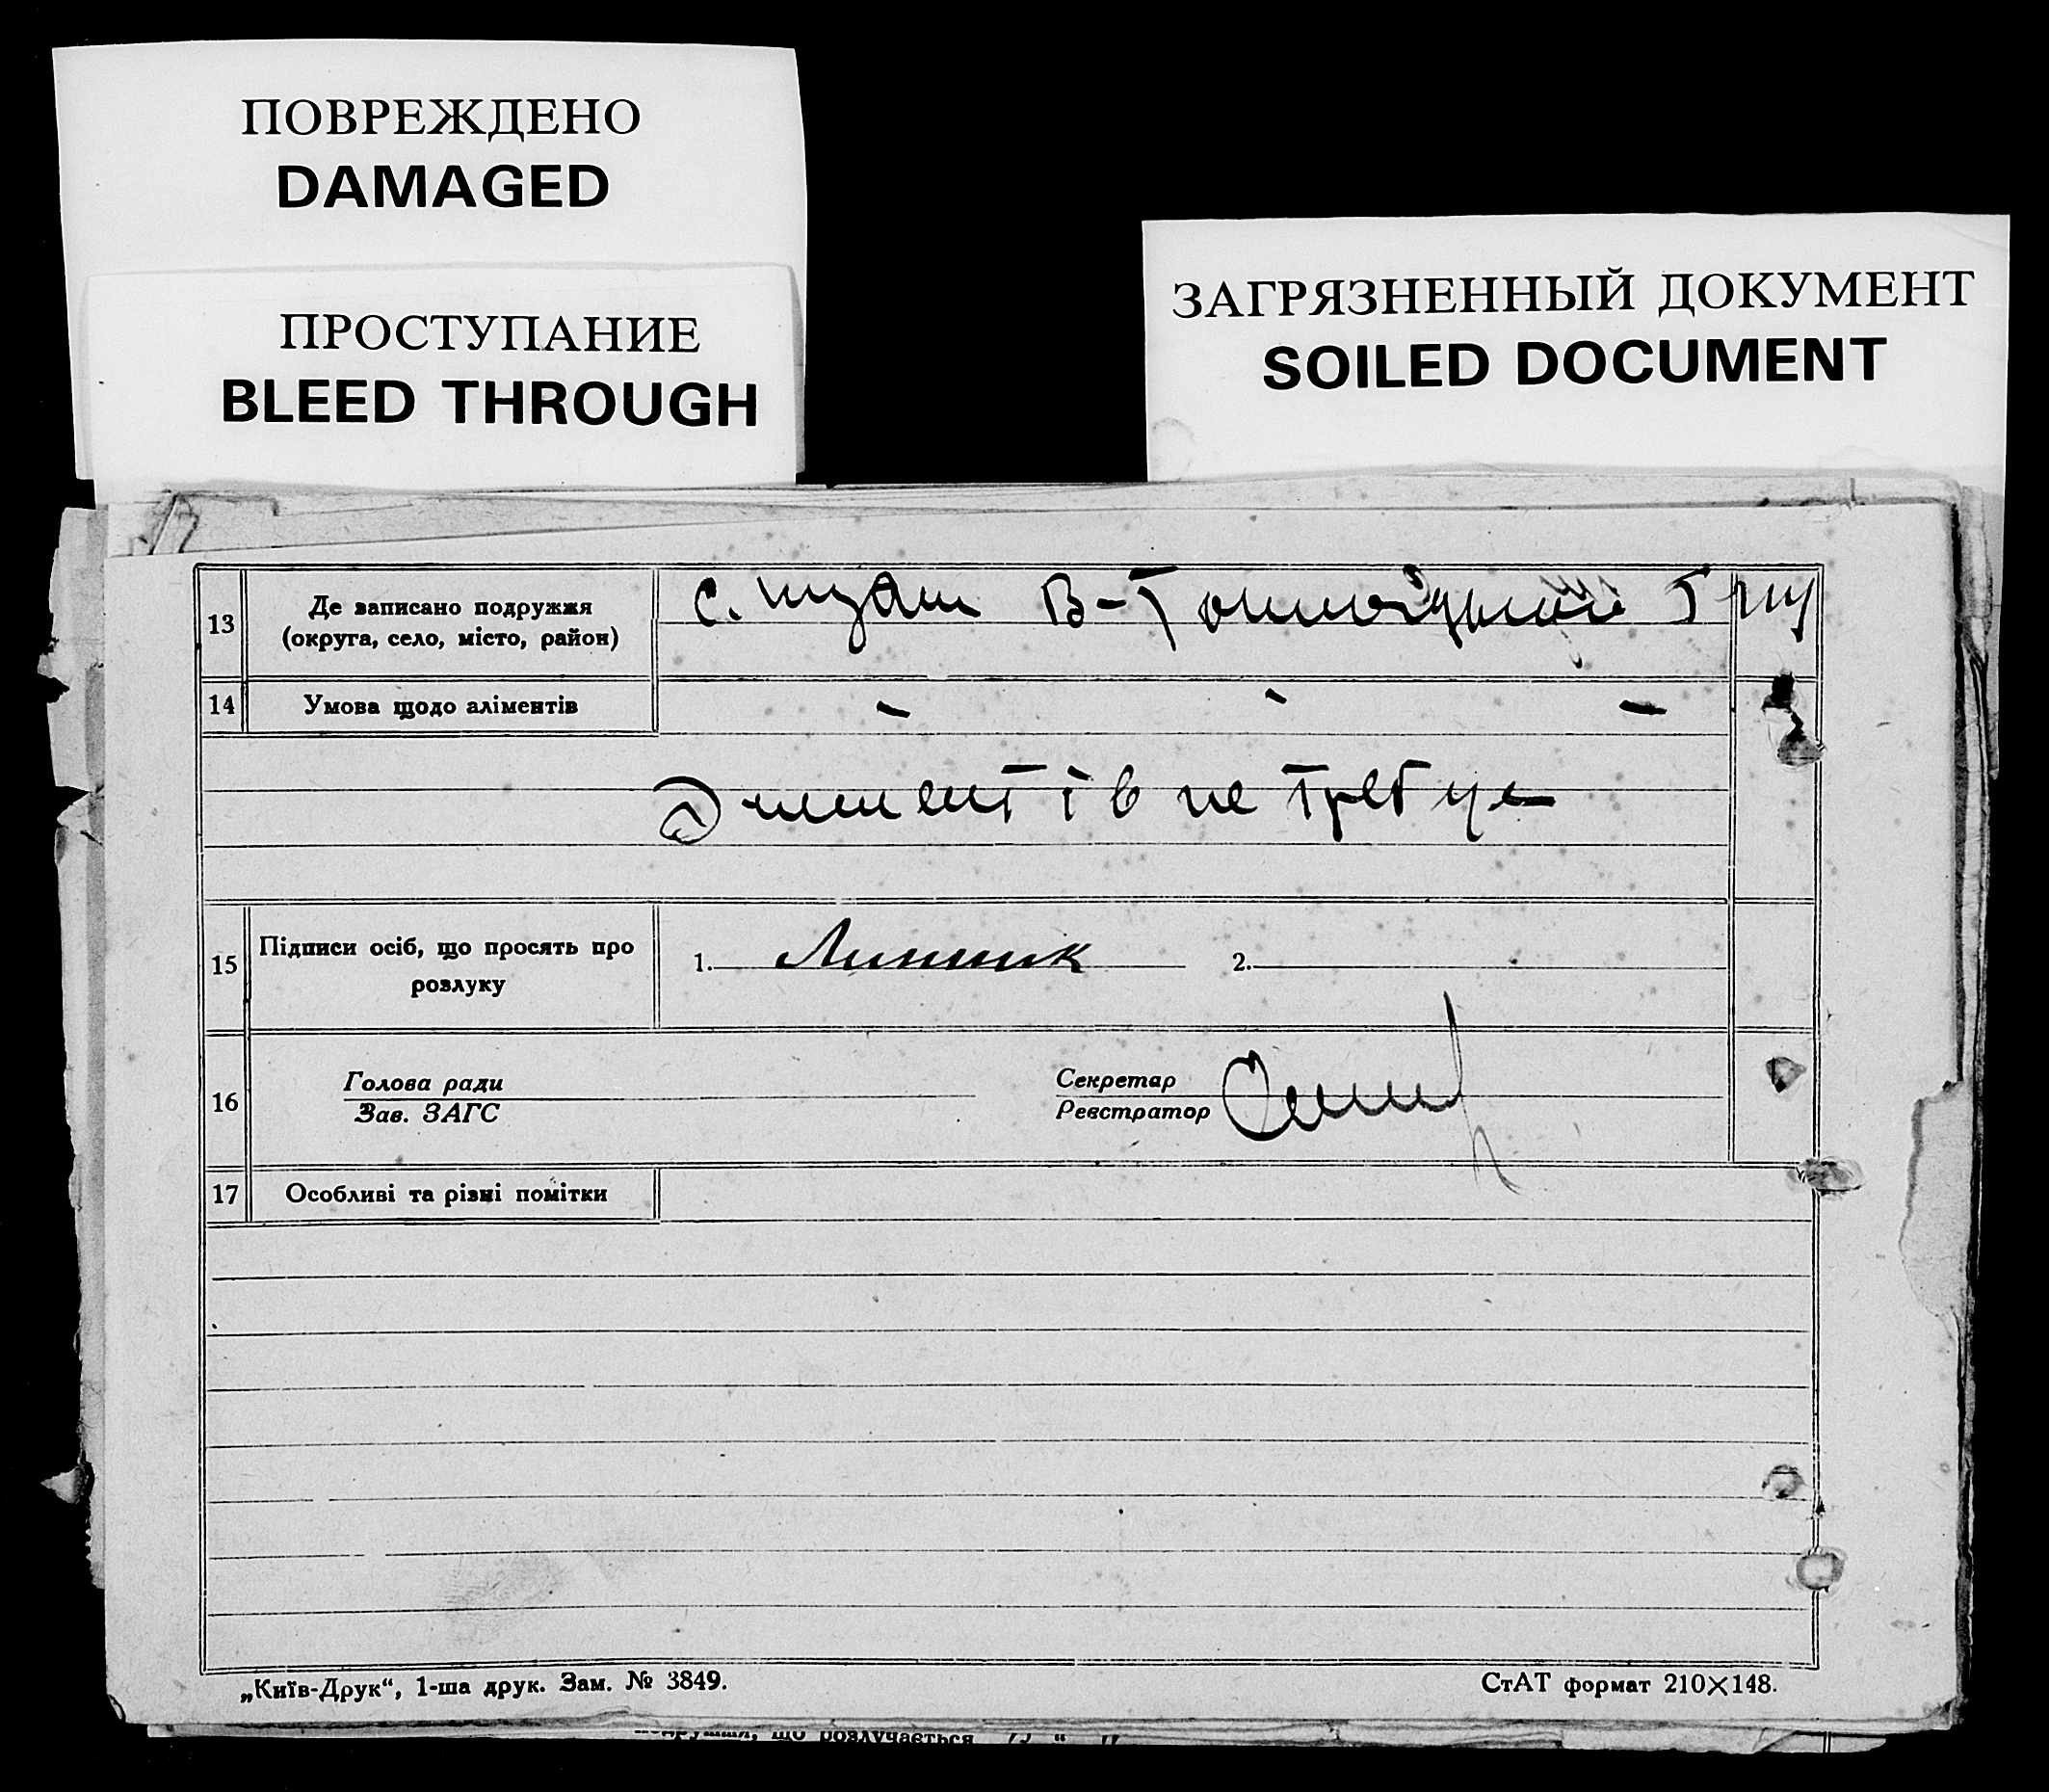 ПОВРЕЖДЕНО
DAMAGED
ПРОСТУПАНИЕ
BLEED THROUGH
ЗАГРЯЗНЕННЫЙ ДОКУМЕНТ
SOILED DOCUMENT
13
Де записано подружжя
(округа, село, місто, район)
с.
14
Умова щодо аліментів
- - -
Аліментів не требує
15
Підписи осіб, що просять про
розлуку
1. Линник
2.
16
Голова ради
Зав. ЗАГС
Секретар
Реєстратор
17
Особливі та різні помітки
„Київ-Друк“, 1-ша друк. Зам. № 3849.
СтАТ формат 210×148.
що розлучається